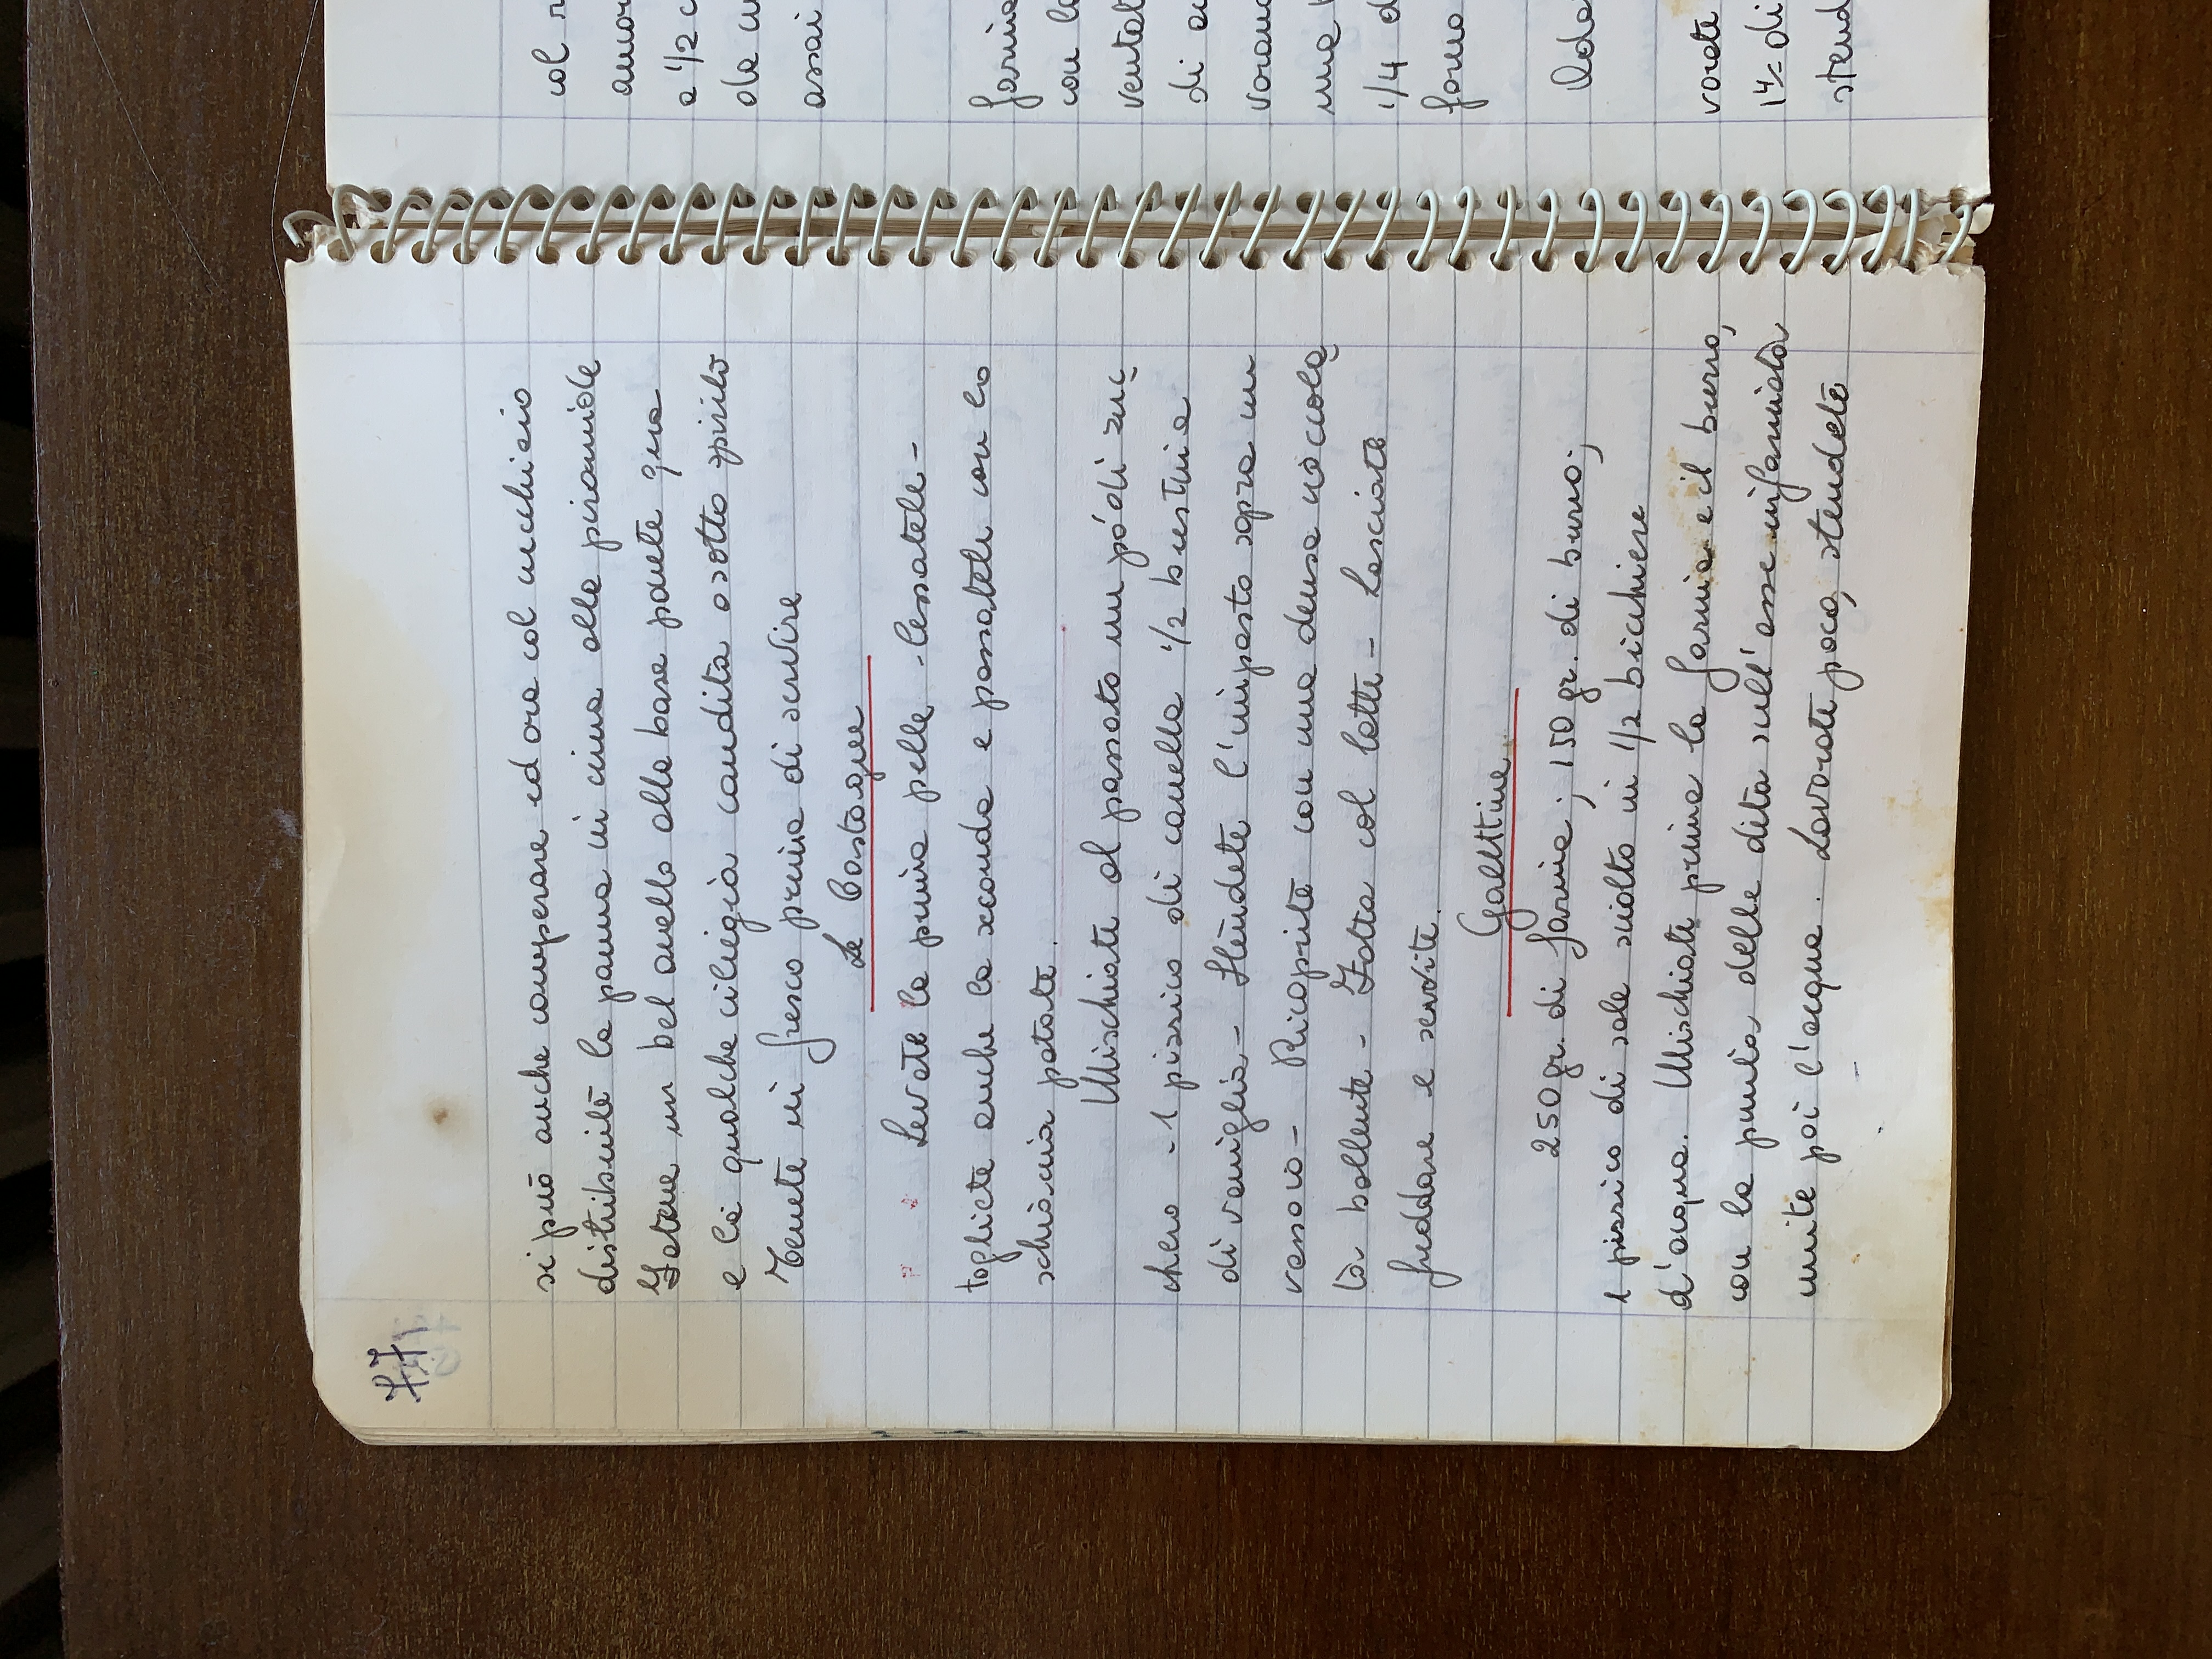 77
si può anche comperare ed ora col cucchiaio
distribuite la panna in cima alla piramide
Fatene un bel anello alla base ponete qua
e là qualche ciliegia candita o sotto spirito
Tenete in fresco prima di servire
Le Castagne
Levate la prima pelle - lessatele -
togliete anche la seconda e passatele con lo
schiaccia patate.
Mischiate al passato un pó di zuc
chero - 1 pizzico di canella 1/2 bustina
di vaniglia - Stendete l'impasto sopra un
vassoio - Ricoprite con una densa cioccola
ta bollente - Fatta col latte - Lasciate
freddare e servite.
Galettine
250 gr. di farina; 150 gr. di burro;
1 pizzico di sale sciolto in 1/2 bicchiere
d'acqua. Mischiate prima la farina e il burro,
con la punta delle dita sull'asse infarinata
unite poi l'acqua. Lavorate poco, stendete
col
a 1/2
assai
farina
con
di
una
1/4
forno
vorate
di